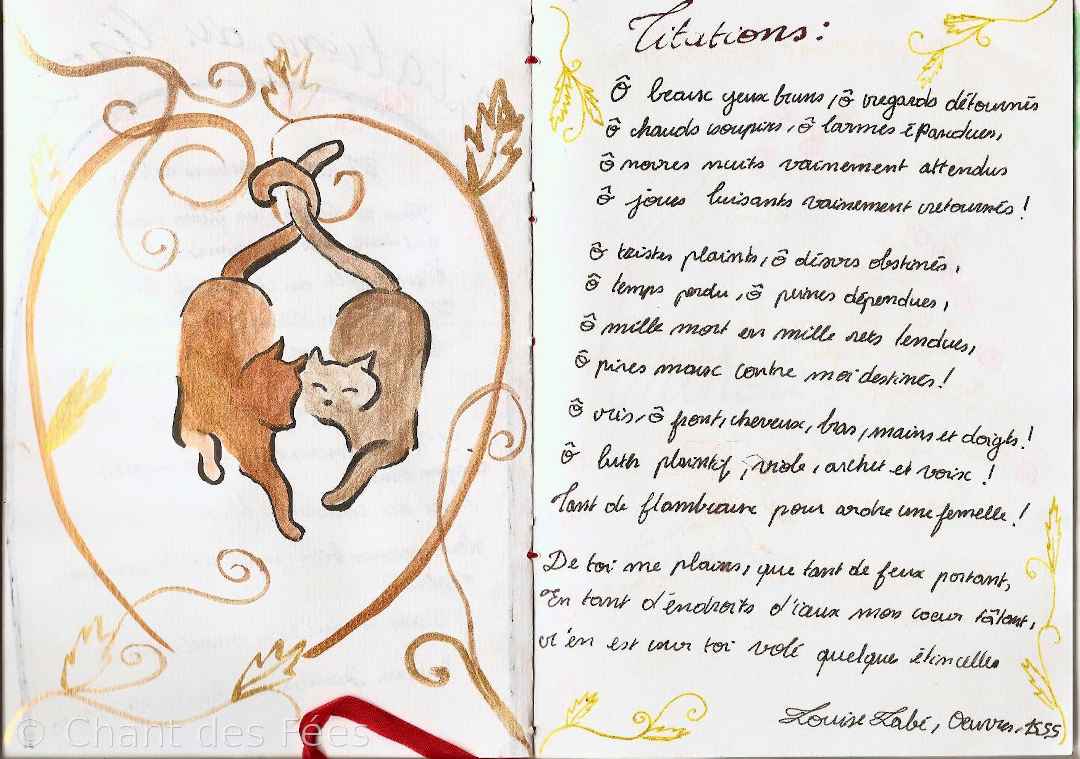 Citations :
Ô beaux yeux bruns, ô regards détournés
ô chauds soupirs, ô larmes épandues,
ô noires nuits vainement attendus
ô jours luisants vainement retournés !
ô tristes plaints, ô désirs obstinés,
ô temps perdu, ô peines dépendues,
ô mille mort en mille rets tendues,
ô pires maux contre moi destinés !
ô ris, ô front, cheveux, bras, mains et doigts !
ô luth plaintif, viole, archet et voix !
Tant de flambeaux pour ardre une femelle !
De toi me plains, que tant de feux portant,
En tant d'éndroits d'iceux mon coeur tâtant,
n'en est sur toi volé quelques étincelles
Louise Labé, Oeuvres, 1555
© Chant des Fées